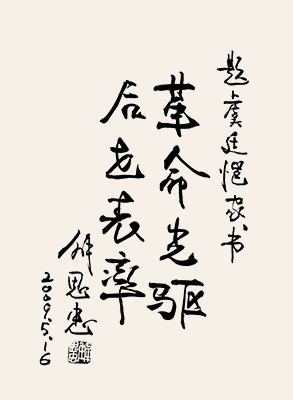 题虞廷恺家书
革命先驱
后世表率
薛思惠
2009.5.16